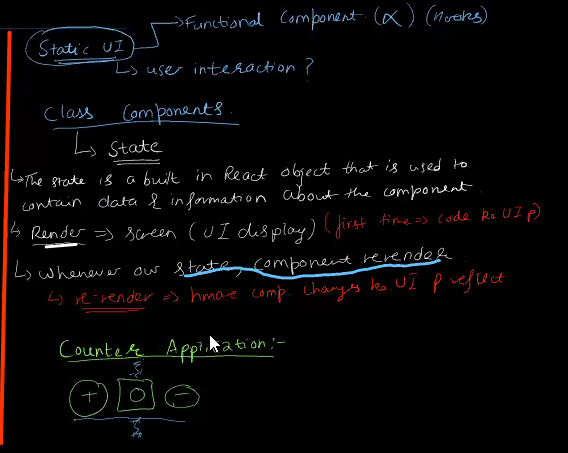 Functional Component (α) (Hooks)
Static UI
user interaction?
Class Components.
State
The state is a built in React object that is used to
contain data & information about the component.
Render => screen (UI display) (first time => code ko UI p)
Whenever our state, component rerender
re-render => hmare comp. changes ko UI p reflect
Counter Application:-
+ 0 -